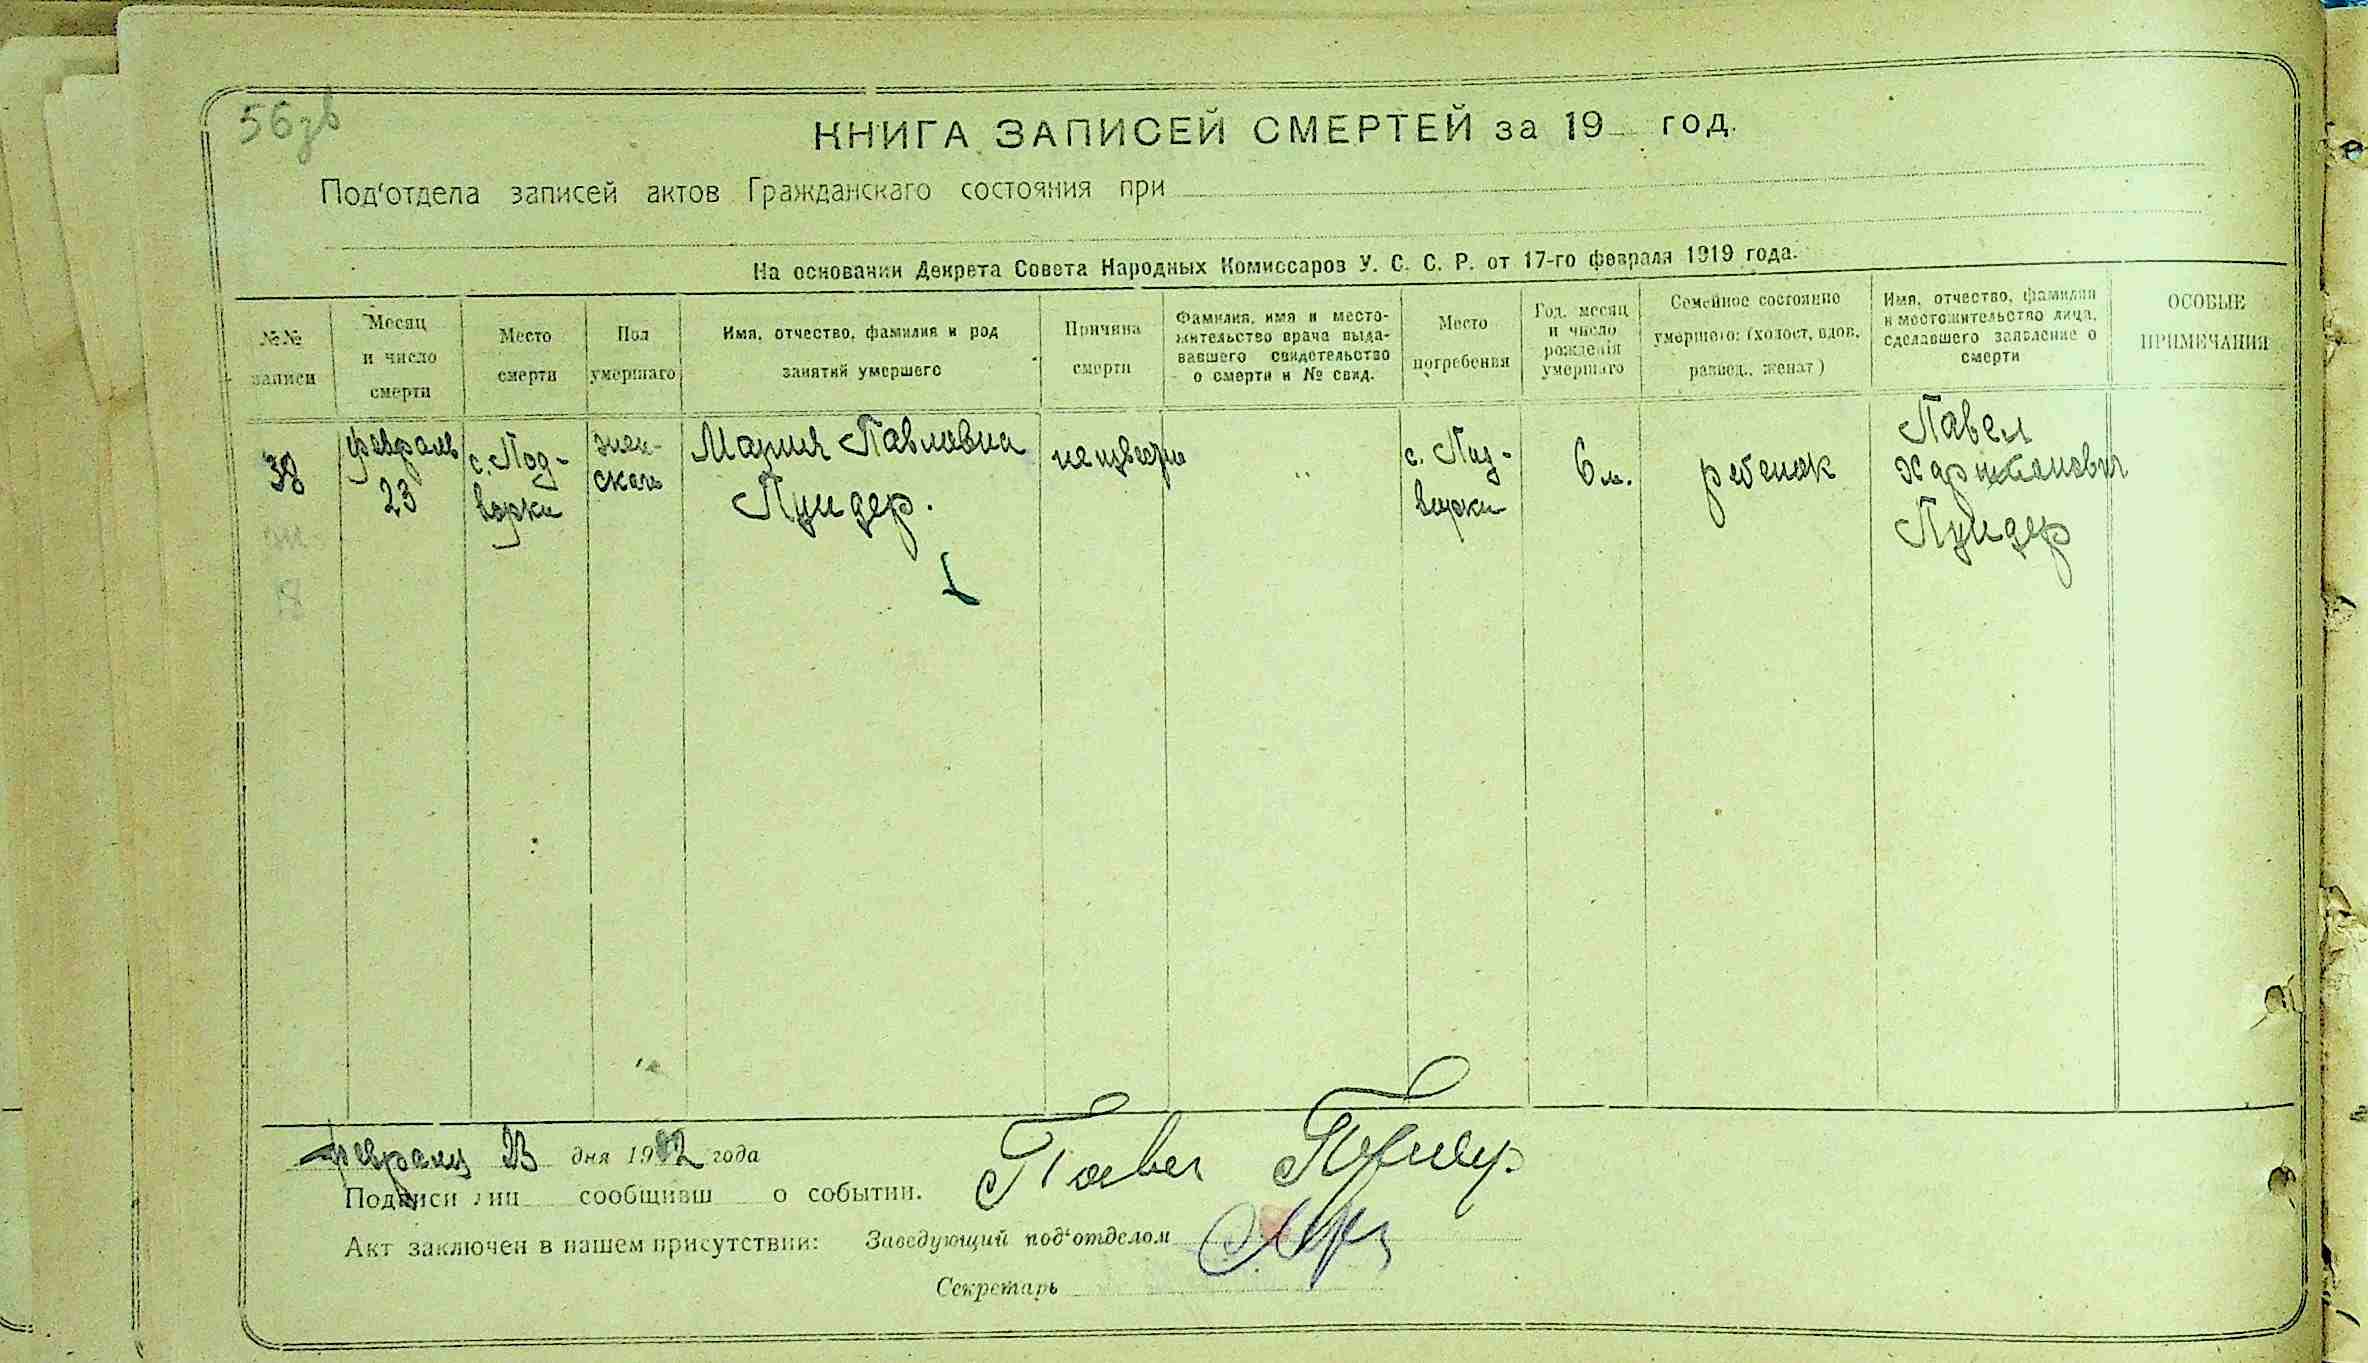 56 зв
КНИГА ЗАПИСЕЙ СМЕРТЕЙ за 19 год.
Под‘отдела записей актов Гражданскаго состояния при
На основании Декрета Совета Народных Комиссаров У. С. С. Р. от 17-го февраля 1919 года.
№№ записи
Месяц и число смерти
Место смерти
Пол умершаго
Имя, отчество, фамилия и род занятий умершего
Причина смерти
Фамилия, имя и место-жительство врача выда-вавшего свидетельство о смерти и № свид.
Место погребения
Год, месяц и число рождения умершаго
Семейное состояние умершего: (холост, вдов, развед., женат)
Имя, отчество, фамилия и местожительство лица, сделавшего заявление о смерти
ОСОБЫЕ ПРИМЕЧАНИЯ
38
февраль 23
с. Под-ворки
жен-ской
Мария Павловна
Пундер.
неизвестно
"
с. Под-ворки
6 м.
ребенок
Павел
Пундер
февраля 23 дня 1922 года
Подписи лиц сообщивш о событии.
Павел Пундер
Акт заключен в нашем присутствии: Заведующий под‘отделом
Секретарь